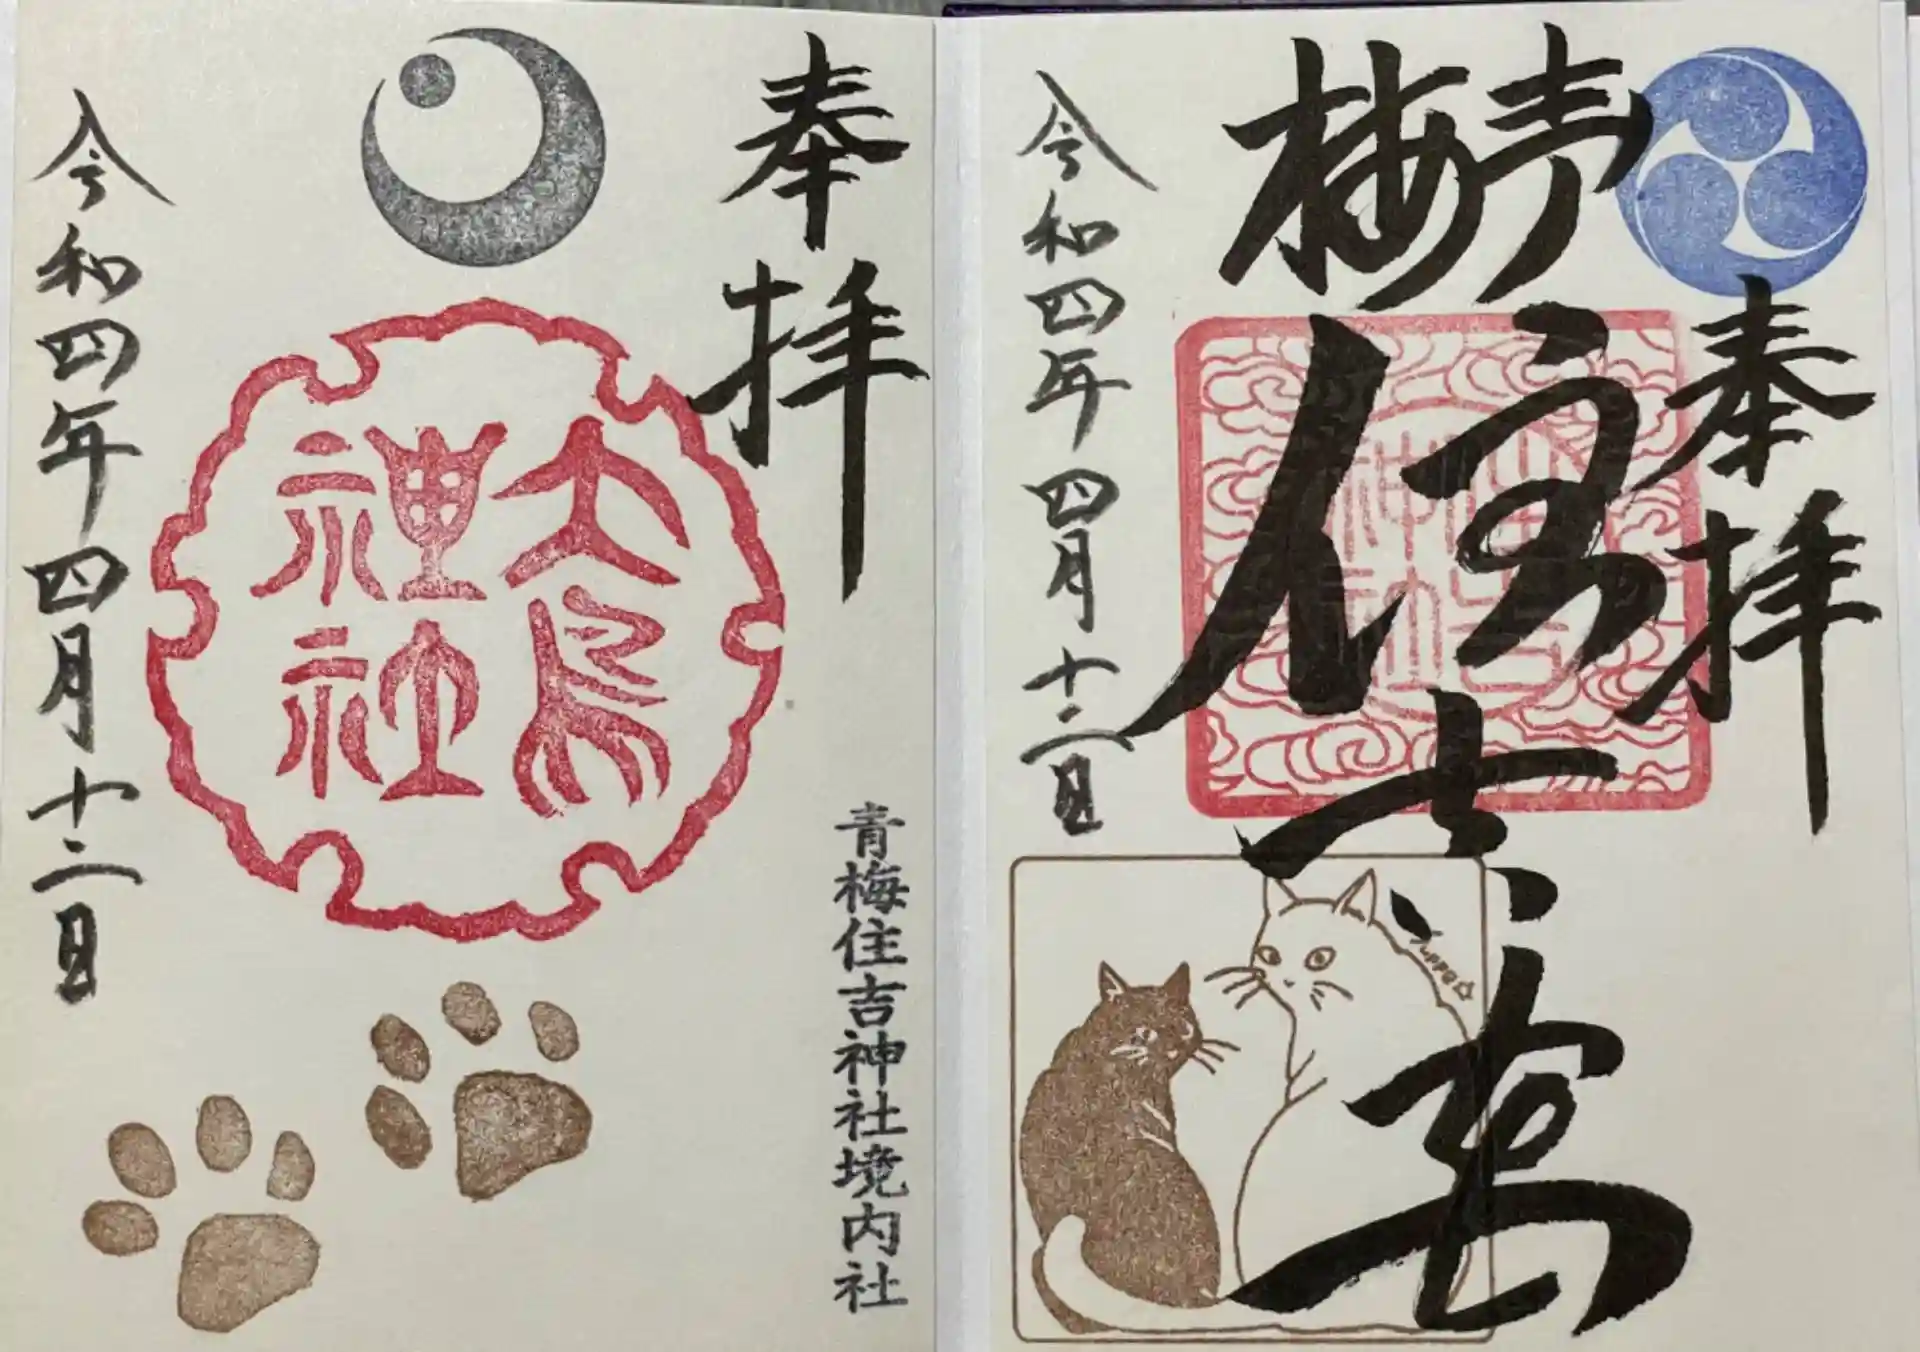 奉拝
青梅
住吉
住吉
神社
令和四年四月十二日
奉拝
青梅住吉神社境内社
大鳥
神社
令和四年四月十二日